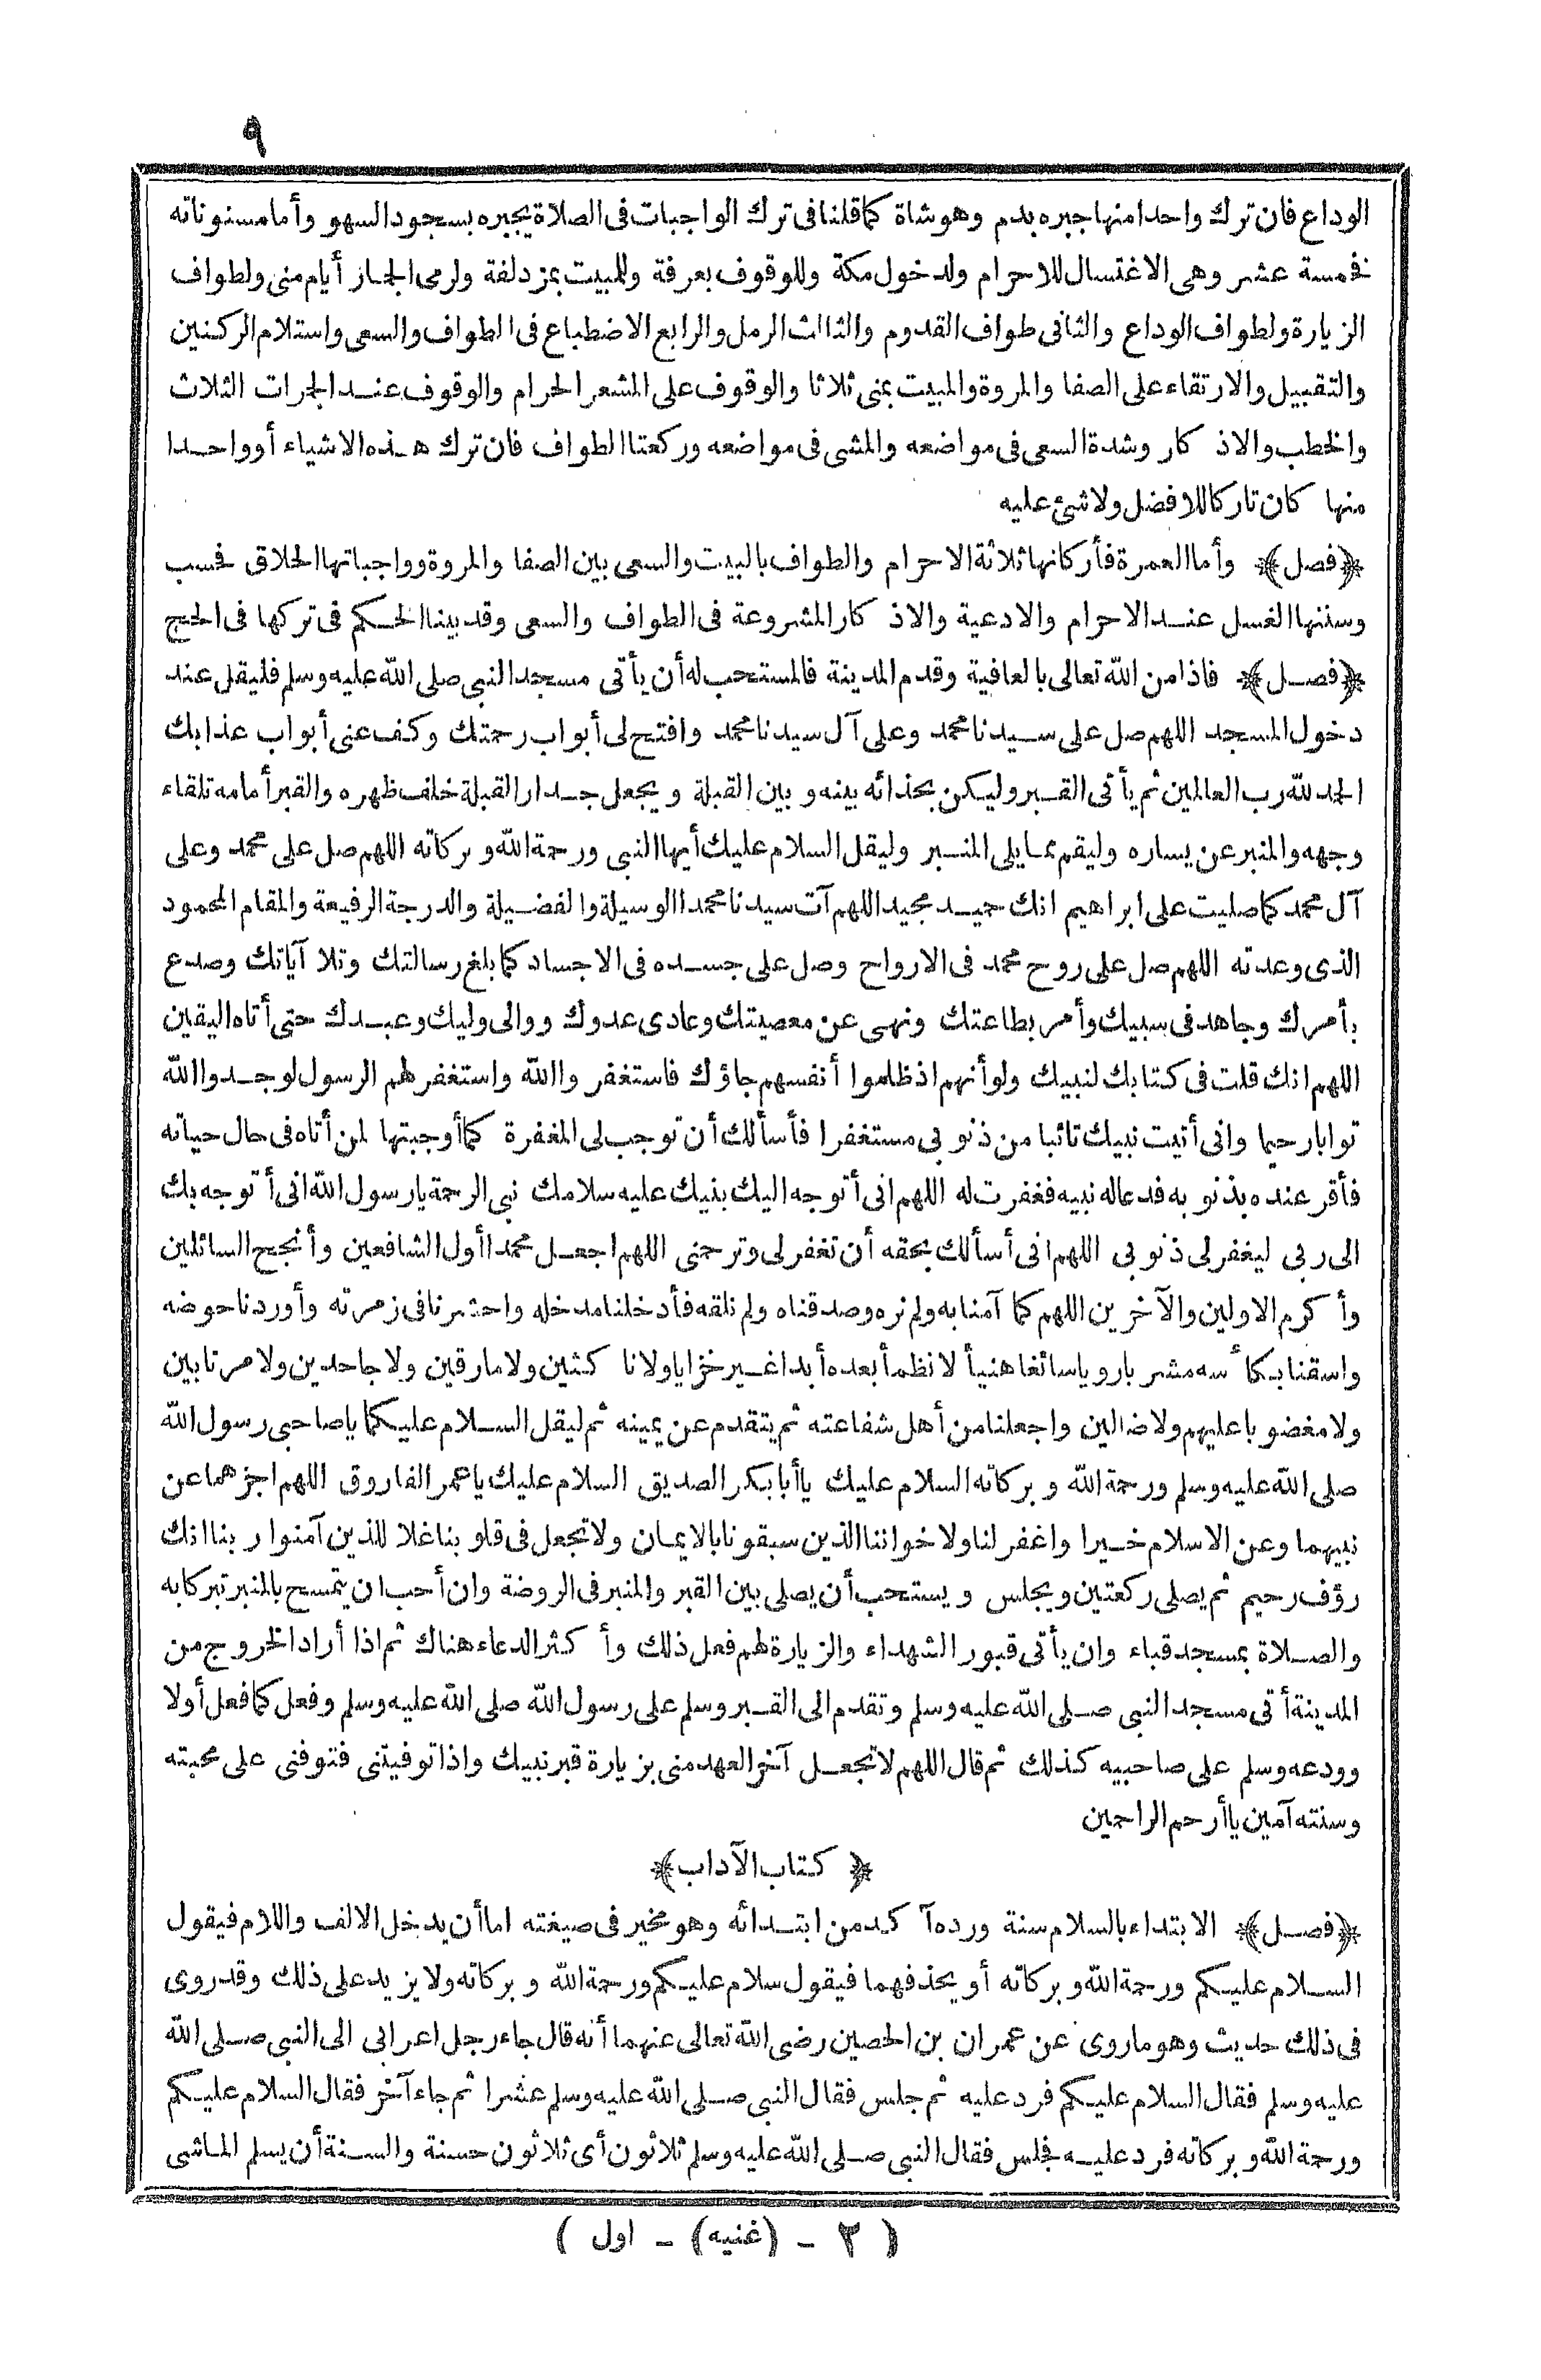 ٩
الوداع فان ترك واحدا منها جبره بدم وهو شاة كما قلنا فى ترك الواجبات فى الصلاة يجبره بسجود السهو وأما مسنوناته
فخمسة عشر وهى الاغتسال للاحرام ولدخول مكة وللوقوف بعرفة وللمبيت بمزدلفة ولرمى الجمار أيام منى ولطواف
الزيارة ولطواف الوداع والثانى طواف القدوم والثالث الرمل والرابع الاضطباع فى الطواف والسعى واستلام الركنين
والتقبيل والارتقاء على الصفا والمروة والمبيت بمنى ثلاثا والوقوف على المشعر الحرام والوقوف عند الجمرات الثلاث
والخطب والاذكار وشدة السعى فى مواضعه والمشى فى مواضعه وركعتا الطواف فان ترك هذه الاشياء أو واحدا
منها كان تاركا للافضل ولا شئ عليه
﴿فصل﴾ وأما العمرة فأركانها ثلاثة الاحرام والطواف بالبيت والسعى بين الصفا والمروة وواجباتها الحلاق فحسب
وسننها الغسل عند الاحرام والادعية والاذكار المشروعة فى الطواف والسعى وقد بينا الحكم فى تركها فى الحج
﴿فصل﴾ فاذا من الله تعالى بالعافية وقدم المدينة فالمستحب له أن يأتى مسجد النبى صلى الله عليه وسلم فليقل عند
دخول المسجد اللهم صل على سيدنا محمد وعلى آل سيدنا محمد وافتح لى أبواب رحمتك وكف عنى أبواب عذابك
الحمد لله رب العالمين ثم يأتى القبر وليكن بحذائه بينه وبين القبلة ويجعل جدار القبلة خلف ظهره والقبر أمامه تلقاء
وجهه والمنبر عن يساره وليقم مما يلى المنبر وليقل السلام عليك أيها النبى ورحمة الله وبركاته اللهم صل على محمد وعلى
آل محمد كما صليت على ابراهيم انك حميد مجيد اللهم آت سيدنا محمدا الوسيلة والفضيلة والدرجة الرفيعة والمقام المحمود
الذى وعدته اللهم صل على روح محمد فى الارواح وصل على جسده فى الاجساد كما بلغ رسالتك وتلا آياتك وصدع
بأمرك وجاهد فى سبيك وأمر بطاعتك ونهى عن معصيتك وعادى عدوك ووالى وليك وعبدك حتى أتاه اليقين
اللهم انك قلت فى كتابك لنبيك ولو أنهم اذ ظلموا أنفسهم جاؤك فاستغفروا الله واستغفر لهم الرسول لوجدوا الله
توابا رحيما وانى أتيت نبيك تائبا من ذنوبى مستغفرا فأسألك أن توجب لى المغفرة كما أوجبتها لمن أتاه فى حال حياته
فأقر عنده بذنوبه فدعا له نبيه فغفرت له اللهم انى أتوجه اليك بنيك عليه سلامك نبى الرحمة يا رسول الله انى أتوجه بك
الى ربى ليغفر لى ذنوبى اللهم انى أسألك بحقه أن تغفر لى وترحمنى اللهم اجعل محمدا أول الشافعين وأنجح السائلين
وأكرم الاولين والآخرين اللهم كما آمنا به ولم نره وصدقناه ولم نلقه فأدخلنا مدخله واحشرنا فى زمرته وأوردنا حوضه
واسقنا بكأسه مشربا رويا سائغا هنيأ لا نظمأ بعده أبدا غير خزايا ولا ناكثين ولا مارقين ولا جاحدين ولا مرتابين
ولا مغضوبا عليهم ولا ضالين واجعلنا من أهل شفاعته ثم يتقدم عن يمينه ثم ليقل السلام عليكما يا صاحبى رسول الله
صلى الله عليه وسلم ورحمة الله وبركاته السلام عليك يا أبا بكر الصديق السلام عليك يا عمر الفاروق اللهم اجزهما عن
نبيهما وعن الاسلام خيرا واغفر لنا ولاخواننا الذين سبقونا بالايمان ولا تجعل فى قلوبنا غلا للذين آمنوا ربنا انك
رؤف رحيم ثم يصلى ركعتين ويجلس ويستحب أن يصلى بين القبر والمنبر فى الروضة وان أحب ان يتمسح بالمنبر تبركا به
والصلاة بمسجد قباء وان يأتى قبور الشهداء والزيارة لهم فعل ذلك وأكثر الدعاء هناك ثم اذا أراد الخروج من
المدينة أتى مسجد النبى صلى الله عليه وسلم وتقدم الى القبر وسلم على رسول الله صلى الله عليه وسلم وفعل كما فعل أولا
وودعه وسلم على صاحبيه كذلك ثم قال اللهم لا تجعل آخر العهد منى بزيارة قبر نبيك واذا توفيتنى فتوفنى على محبته
وسنته آمين يا أرحم الراحمين
﴿كتاب الآداب﴾
﴿فصل﴾ الابتداء بالسلام سنة ورده آكد من ابتدائه وهو مخير فى صيغته اما أن يدخل الالف واللام فيقول
السلام عليكم ورحمة الله وبركاته أو يحذفهما فيقول سلام عليكم ورحمة الله وبركاته ولا يزيد على ذلك وقد روى
فى ذلك حديث وهو ماروى عن عمران بن الحصين رضى الله تعالى عنهما أنه قال جاء رجل اعرابى الى النبى صلى الله
عليه وسلم فقال السلام عليكم فرد عليه ثم جلس فقال النبى صلى الله عليه وسلم عشرا ثم جاء آخر فقال السلام عليكم
ورحمة الله وبركاته فرد عليه فجلس فقال النبى صلى الله عليه وسلم ثلاثون أى ثلاثون حسنة والسنة أن يسلم الماشى
( ٢ - (غنيه) - اول )